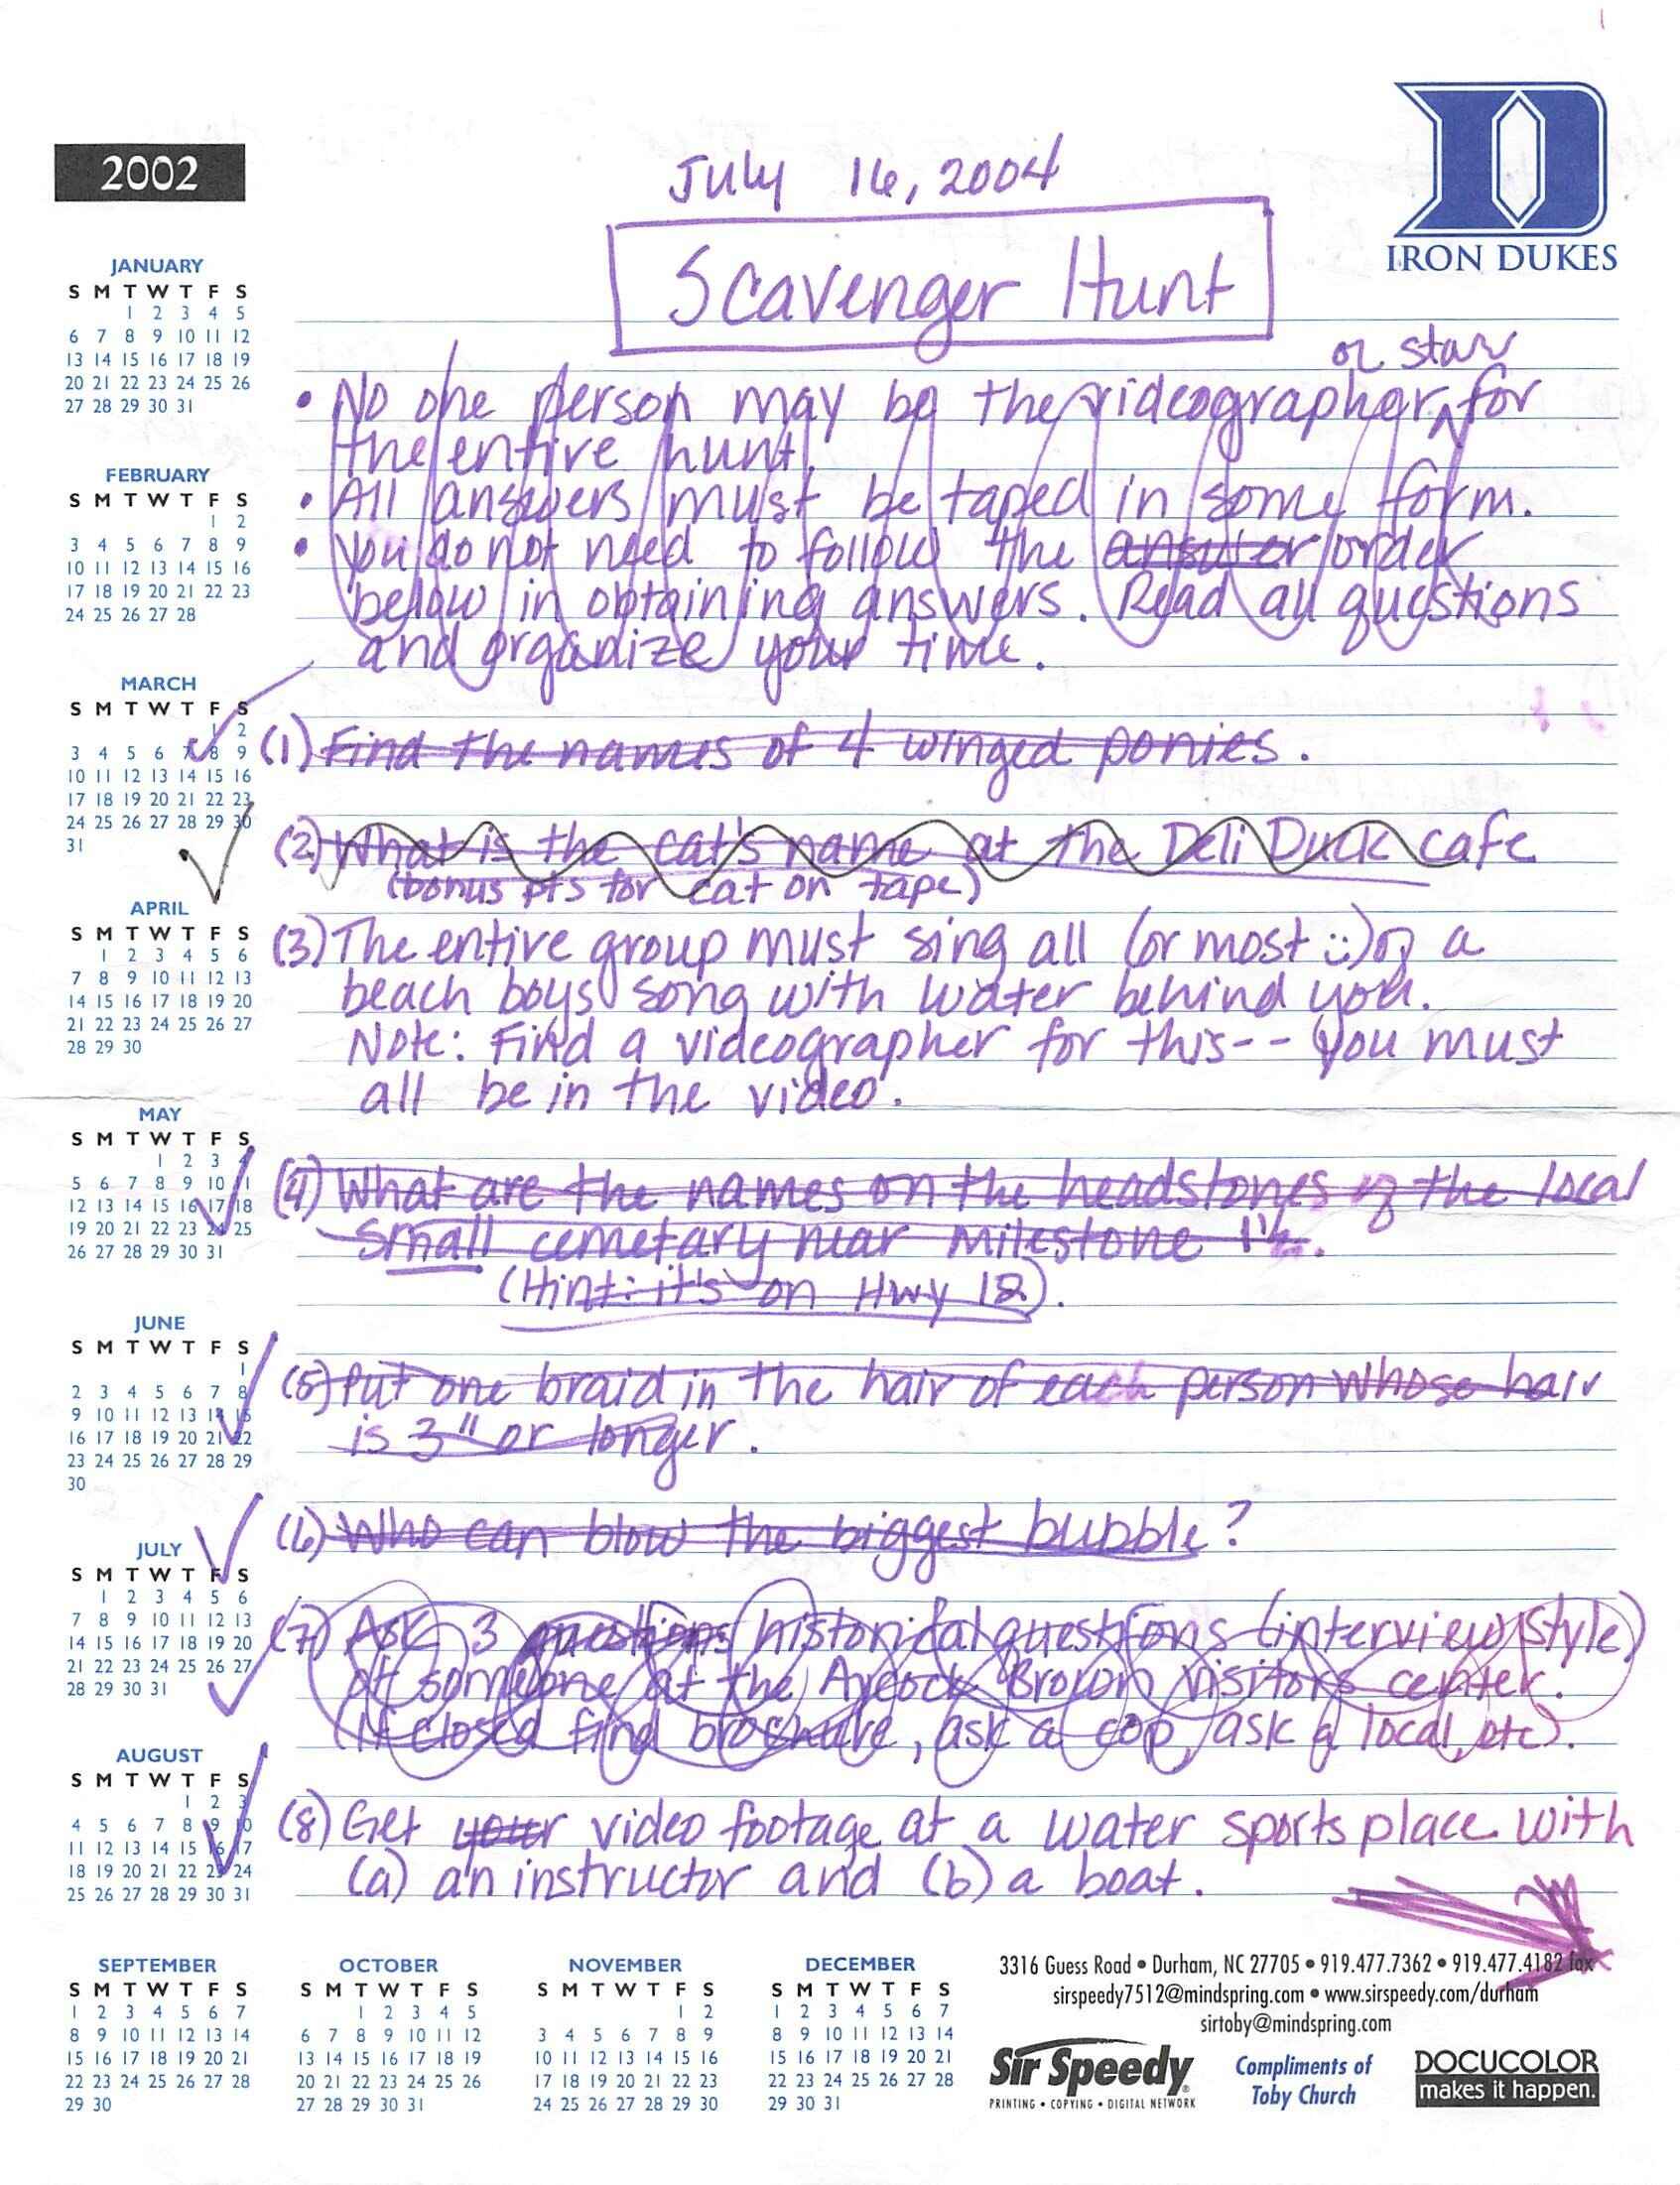 2002
IRON DUKES
July 16, 2004
Scavenger Hunt
or star
• No one person may be the videographer for
the entire hunt.
• All answers must be taped in some form.
• You do not need to follow the answer order
below in obtaining answers. Read all questions
and organize your time.
(1) Find the names of 4 winged ponies.
(2) What is the cat's name at the Deli Duck cafe
(bonus pts for cat on tape)
(3) The entire group must sing all (or most :) of a
beach boys song with water behind you.
Note: Find a videographer for this -- you must
all be in the video.
(4) What are the names on the headstones of the local
small cemetary near Milestone 1½.
(Hint: it's on Hwy 12).
(5) Put one braid in the hair of each person whose hair
is 3" or longer.
(6) Who can blow the biggest bubble?
(7) Ask 3 questions historical questions (interview style)
of someone at the Aycock Brown Visitors center.
(if closed find brochure, ask a cop, ask a local, etc).
(8) Get your video footage at a water sports place with
(a) an instructor and (b) a boat.
JANUARY
S M T W T F S
1 2 3 4 5
6 7 8 9 10 11 12
13 14 15 16 17 18 19
20 21 22 23 24 25 26
27 28 29 30 31
FEBRUARY
S M T W T F S
1 2
3 4 5 6 7 8 9
10 11 12 13 14 15 16
17 18 19 20 21 22 23
24 25 26 27 28
MARCH
S M T W T F S
1 2
3 4 5 6 7 8 9
10 11 12 13 14 15 16
17 18 19 20 21 22 23
24 25 26 27 28 29 30
31
APRIL
S M T W T F S
1 2 3 4 5 6
7 8 9 10 11 12 13
14 15 16 17 18 19 20
21 22 23 24 25 26 27
28 29 30
MAY
S M T W T F S
1 2 3 4
5 6 7 8 9 10 11
12 13 14 15 16 17 18
19 20 21 22 23 24 25
26 27 28 29 30 31
JUNE
S M T W T F S
1
2 3 4 5 6 7 8
9 10 11 12 13 14 15
16 17 18 19 20 21 22
23 24 25 26 27 28 29
30
JULY
S M T W T F S
1 2 3 4 5 6
7 8 9 10 11 12 13
14 15 16 17 18 19 20
21 22 23 24 25 26 27
28 29 30 31
AUGUST
S M T W T F S
1 2 3
4 5 6 7 8 9 10
11 12 13 14 15 16 17
18 19 20 21 22 23 24
25 26 27 28 29 30 31
SEPTEMBER
S M T W T F S
1 2 3 4 5 6 7
8 9 10 11 12 13 14
15 16 17 18 19 20 21
22 23 24 25 26 27 28
29 30
OCTOBER
S M T W T F S
1 2 3 4 5
6 7 8 9 10 11 12
13 14 15 16 17 18 19
20 21 22 23 24 25 26
27 28 29 30 31
NOVEMBER
S M T W T F S
1 2
3 4 5 6 7 8 9
10 11 12 13 14 15 16
17 18 19 20 21 22 23
24 25 26 27 28 29 30
DECEMBER
S M T W T F S
1 2 3 4 5 6 7
8 9 10 11 12 13 14
15 16 17 18 19 20 21
22 23 24 25 26 27 28
29 30 31
3316 Guess Road • Durham, NC 27705 • 919.477.7362 • 919.477.4182 fax
sirspeedy7512@mindspring.com • www.sirspeedy.com/durham
sirtoby@mindspring.com
Sir Speedy
PRINTING • COPYING • DIGITAL NETWORK
Compliments of
Toby Church
DOCUCOLOR
makes it happen.